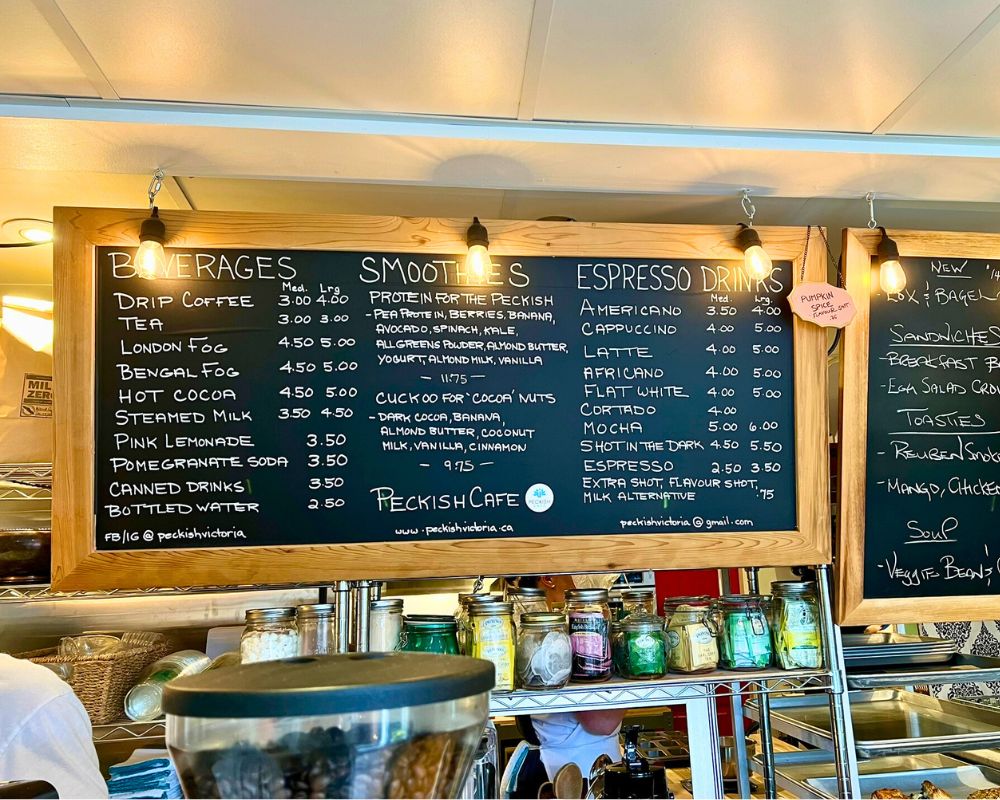 BEVERAGES
Med. Lrg
DRIP COFFEE 3.00 4.00
TEA 3.00 3.00
LONDON FOG 4.50 5.00
BENGAL FOG 4.50 5.00
HOT COCOA 4.50 5.00
STEAMED MILK 3.50 4.50
PINK LEMONADE 3.50
POMEGRANATE SODA 3.50
CANNED DRINKS 3.50
BOTTLED WATER 2.50
FB/IG @ peckishvictoria
SMOOTHIES
PROTEIN FOR THE PECKISH
- PEA PROTEIN, BERRIES, BANANA,
AVOCADO, SPINACH, KALE,
ALL GREENS POWDER, ALMOND BUTTER,
YOGURT, ALMOND MILK, VANILLA
— 11.75 —
CUCKOO FOR 'COCOA' NUTS
- DARK COCOA, BANANA,
ALMOND BUTTER, COCONUT
MILK, VANILLA, CINNAMON
— 9.75 —
PECKISH CAFE
PECKISH
www.peckishvictoria.ca
ESPRESSO DRINKS
Med. Lrg.
AMERICANO 3.50 4.00
CAPPUCCINO 4.00 5.00
LATTE 4.00 5.00
AFRICANO 4.00 5.00
FLAT WHITE 4.00 5.00
CORTADO 4.00
MOCHA 5.00 6.00
SHOT IN THE DARK 4.50 5.50
ESPRESSO 2.50 3.50
EXTRA SHOT, FLAVOUR SHOT,
MILK ALTERNATIVE .75
peckishvictoria@gmail.com
PUMPKIN
SPICE
FLAVOUR SHOT
NEW
- LOX & BAGEL
SANDWICHES
- BREAKFAST
- EGG SALAD
TOASTIES
- REUBEN
- MANGO, CHICKEN
SOUP
- VEGGIE, BEAN &